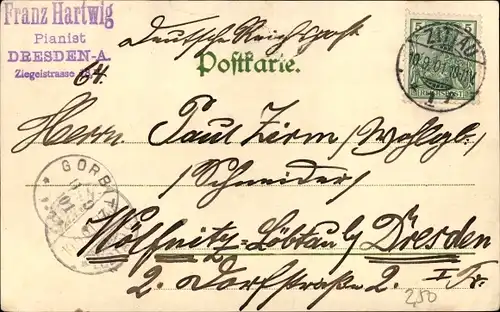 Franz Hartwig
Pianist
DRESDEN-A.
Ziegelstrasse
64.
Deutsche Reichspost
Postkarte.
5 5
REICHSPOST
ZITTAU
10.9.01
Herrn Paul Zirm, Wohlgb.
(Schneider)
GORBITZ
Wölfnitz-Löbtau b/ Dresden
2. Dorfstraße 2. I Tr.
2,50